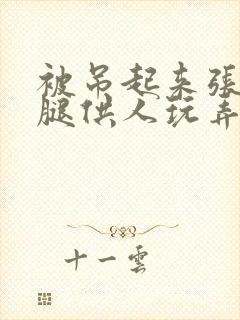 被吊起来張
腿供人玩弄
十一雲